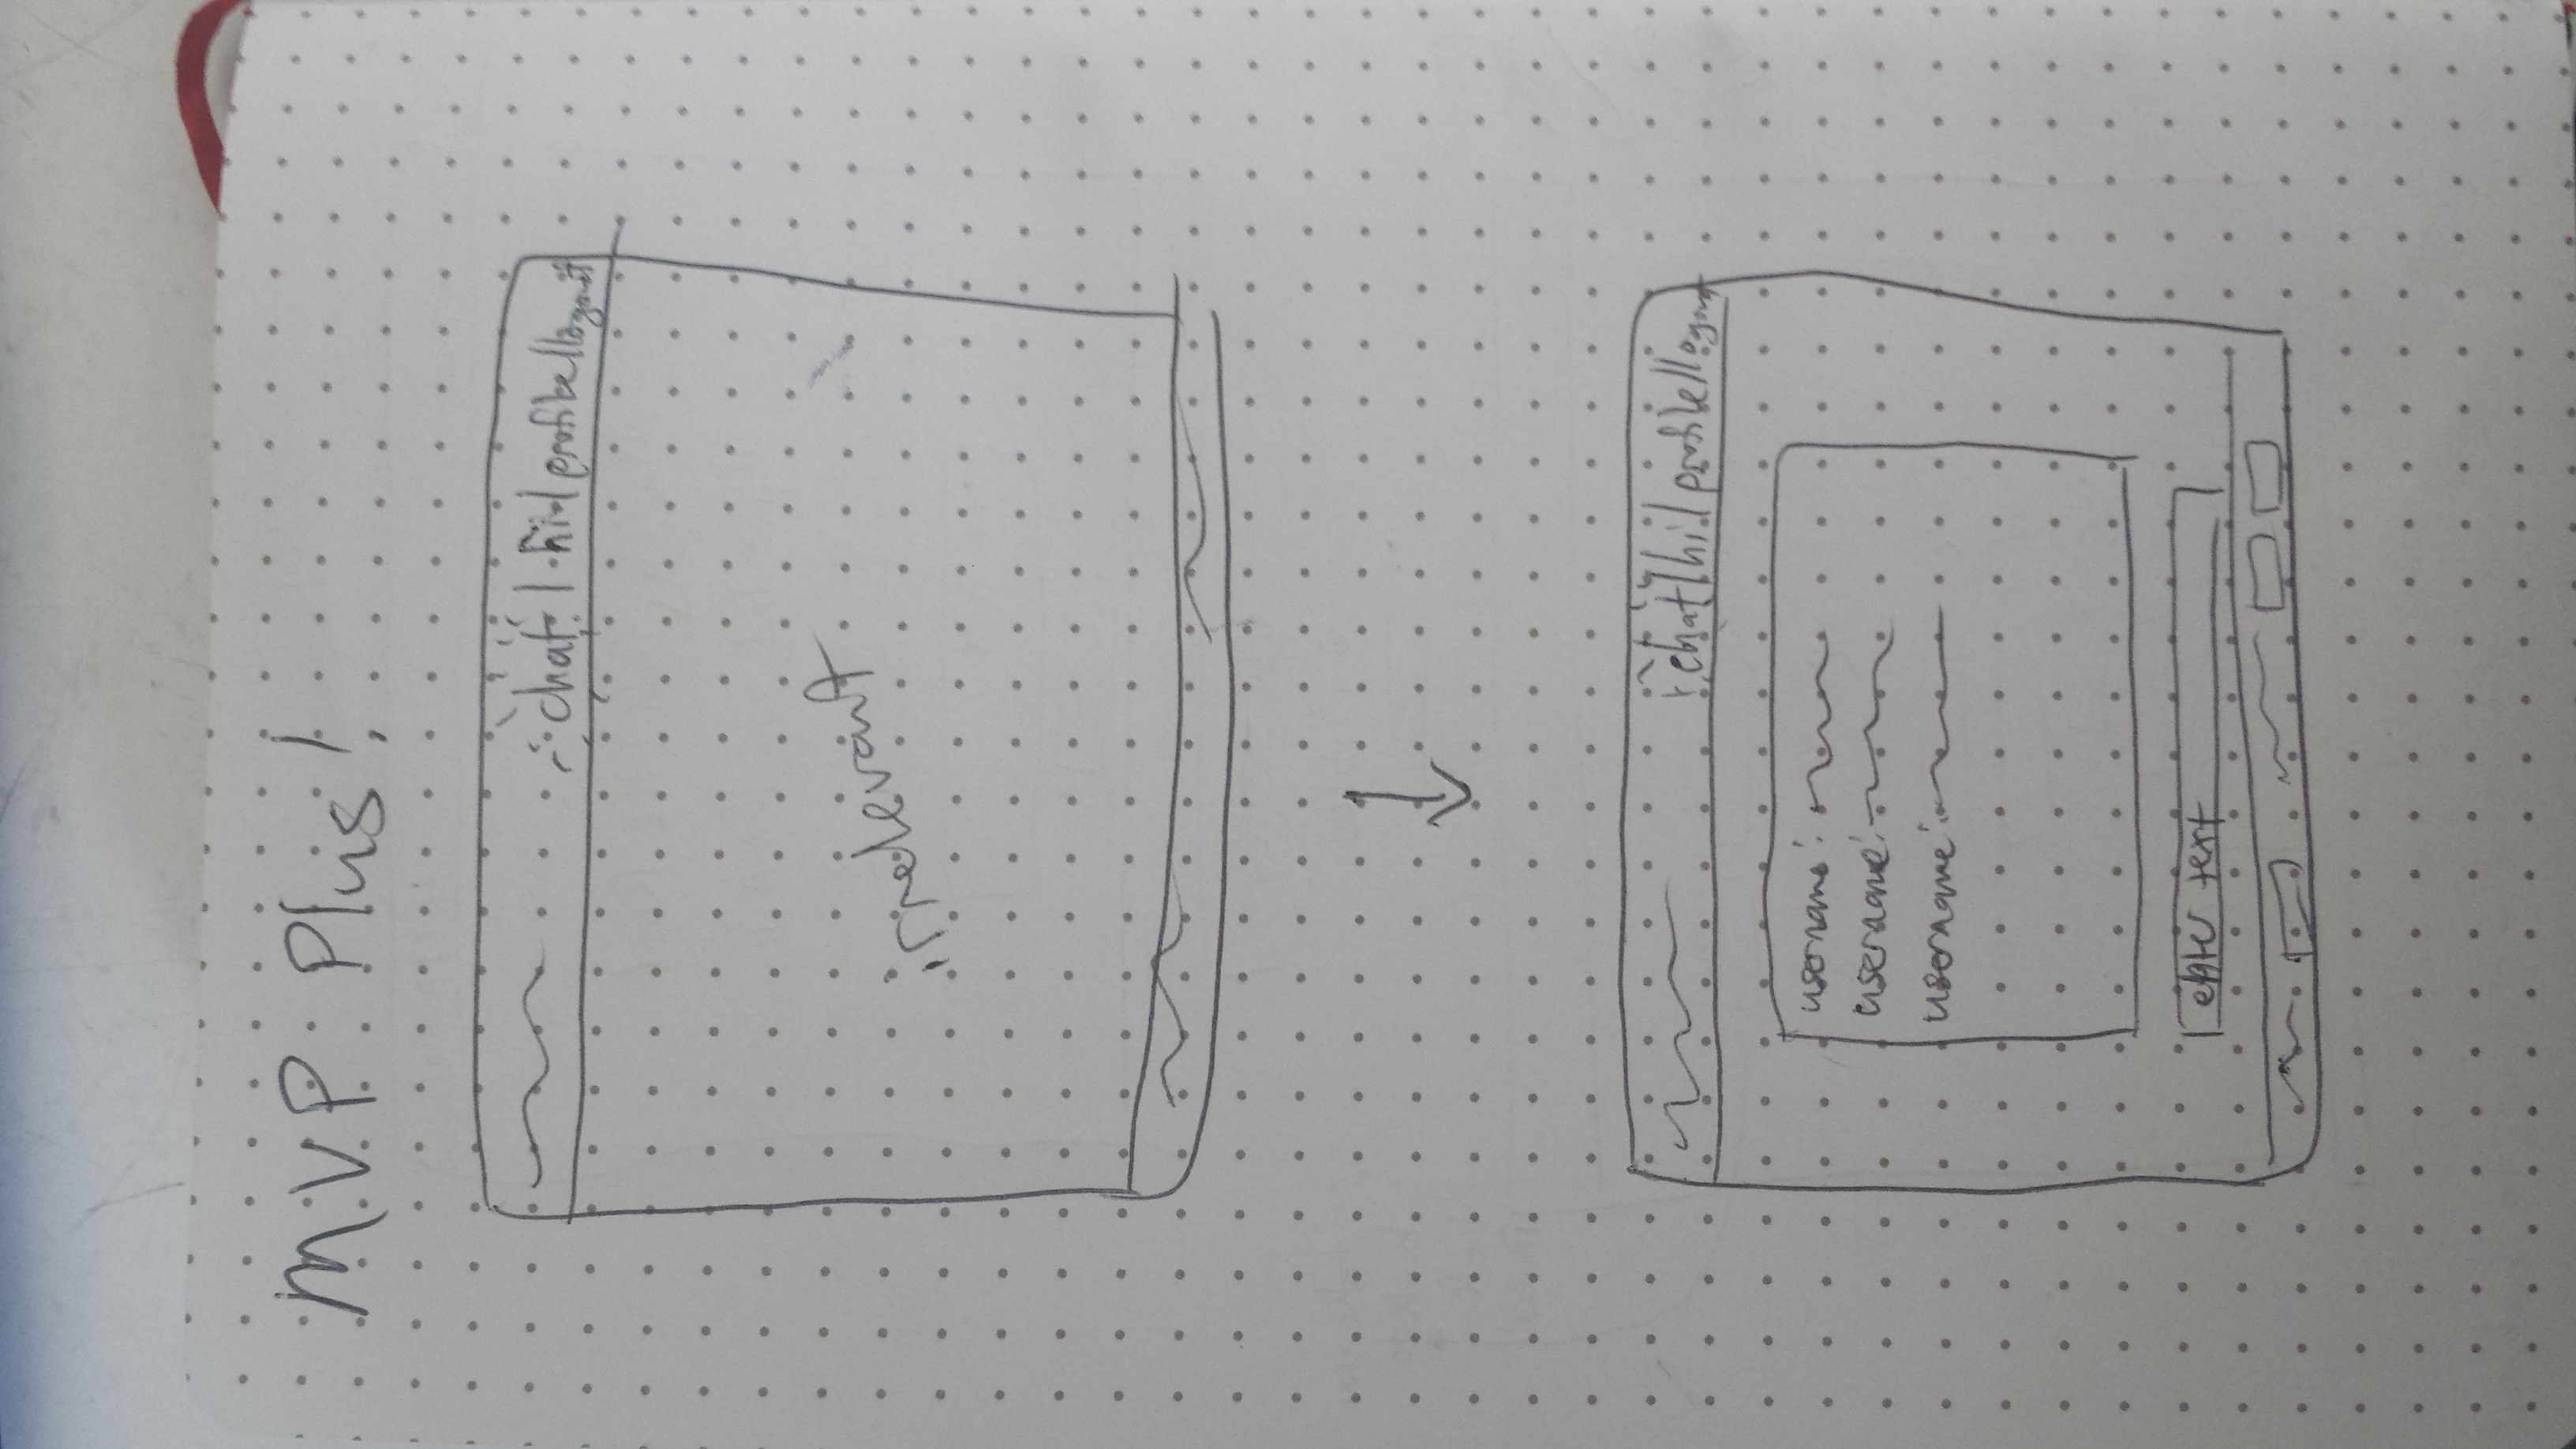 MVP Plus!
chat | hi | profile | logout
irrelevant
chat | hi | profile | logout
username:
username:
username:
enter text